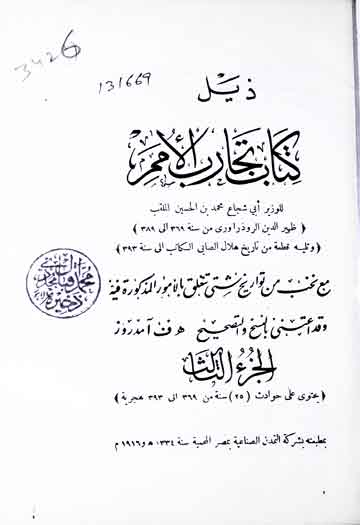 3426
131669
ذيل
كتاب تجارب الأمم
للوزير أبي شجاع محمد بن الحسين الملقب
( ظهير الدين الروذراوري من سنة ٣٦٩ الى ٣٨٩ )
( وتليه قطعة من تاريخ هلال الصابي الكاتب الى سنة ٣٩٣ )
مع نخب من تواريخ شتى تتعلق بالأمور المذكورة فيه
وقد اعتنى بالنسخ والتصحيح ه. ف. آمدروز
الجزء الثالث
( يحتوى على حوادث (٢٥) سنة من ٣٦٩ الى ٣٩٣ هجرية )
بمطبعة بشركة التمدن الصناعية بمصر المحمية سنة ١٣٣٤ ه و١٩١٦ م